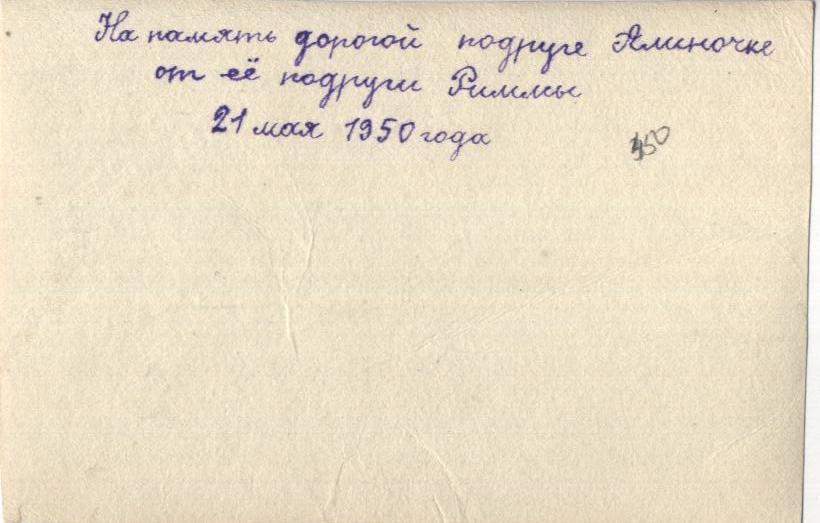 На память дорогой подруге Алиночке
от её подруги Риммы
21 мая 1950 года